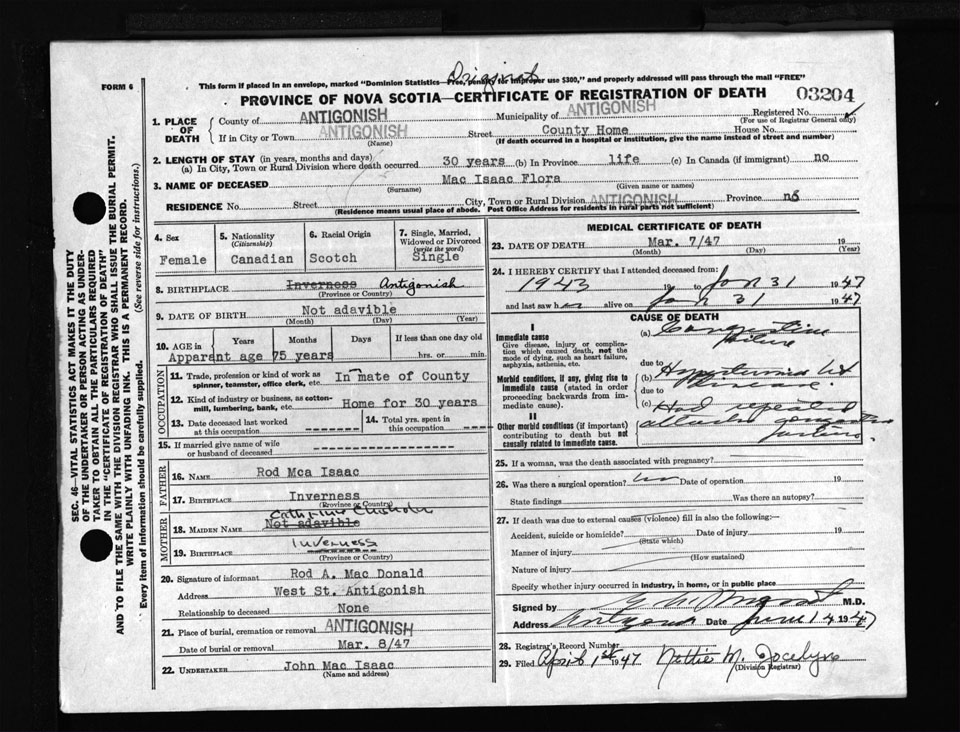 Original
FORM 6
This form if placed in an envelope, marked "Dominion Statistics—Free, penalty for improper use $300," and properly addressed will pass through the mail "FREE"
PROVINCE OF NOVA SCOTIA—CERTIFICATE OF REGISTRATION OF DEATH
03204
1. PLACE OF DEATH
County of ANTIGONISH Municipality of ANTIGONISH Registered No.
(For use of Registrar General only)
If in City or Town ANTIGONISH Street County Home House No.
(Name) (If death occurred in a hospital or institution, give the name instead of street and number)
2. LENGTH OF STAY (in years, months and days)
(a) In City, Town or Rural Division where death occurred 30 years (b) In Province life (c) In Canada (if immigrant) no
3. NAME OF DECEASED Mac Isaac Flora
(Surname) (Given name or names)
RESIDENCE No. Street City, Town or Rural Division ANTIGONISH Province nS
(Residence means usual place of abode. Post Office Address for residents in rural parts not sufficient)
4. Sex
Female
5. Nationality
(Citizenship)
Canadian
6. Racial Origin
Scotch
7. Single, Married, Widowed or Divorced
(write the word)
Single
8. BIRTHPLACE Inverness Antigonish
(Province or Country)
9. DATE OF BIRTH Not adavible
(Month) (Day) (Year)
10. AGE in Years Months Days If less than one day old
Apparant age 75 years hrs. or min.
OCCUPATION
11. Trade, profession or kind of work as spinner, teamster, office clerk, etc. In mate of County
12. Kind of industry or business, as cotton-mill, lumbering, bank, etc. Home for 30 years
13. Date deceased last worked at this occupation
14. Total yrs. spent in this occupation
15. If married give name of wife or husband of deceased
FATHER
16. NAME Rod Mca Isaac
17. BIRTHPLACE Inverness
(Province or Country)
MOTHER
Catherine Chisholm
18. MAIDEN NAME Not adavible
Inverness
19. BIRTHPLACE
(Province or Country)
20. Signature of informant Rod A. Mac Donald
Address West St. Antigonish
Relationship to deceased None
21. Place of burial, cremation or removal ANTIGONISH
Date of burial or removal Mar. 8/47
22. UNDERTAKER John Mac Isaac
(Name and address)
MEDICAL CERTIFICATE OF DEATH
23. DATE OF DEATH Mar. 7/47 19
(Month) (Day) (Year)
24. I HEREBY CERTIFY that I attended deceased from:
1943 19 to Jan 31 1947
and last saw her alive on Jan 31 1947
CAUSE OF DEATH
I
Immediate cause
Give disease, injury or complication which caused death, not the mode of dying, such as heart failure, asphyxia, asthenia, etc.
(a) Congestive failure
due to
Morbid conditions, if any, giving rise to immediate cause (stated in order proceeding backwards from immediate cause).
(b) Hypertensive Ht disease.
due to
(c) Had repeated attacks congestive failure.
II
Other morbid conditions (if important) contributing to death but not causally related to immediate cause.
25. If a woman, was the death associated with pregnancy?
26. Was there a surgical operation? no Date of operation 19
State findings Was there an autopsy?
27. If death was due to external causes (violence) fill in also the following:—
Accident, suicide or homicide? Date of injury 19
(State which)
Manner of injury
(How sustained)
Nature of injury
Specify whether injury occurred in industry, in home, or in public place
Signed by M.D.
Address Antigonish Date 1947
28. Registrar's Record Number
29. Filed April 1st 1947 Nettie M. Jocelyn
(Division Registrar)
SEC. 46—VITAL STATISTICS ACT MAKES IT THE DUTY
OF THE UNDERTAKER OR PERSON ACTING AS UNDER-
TAKER TO OBTAIN ALL THE PARTICULARS REQUIRED
IN THE "CERTIFICATE OF REGISTRATION OF DEATH"
AND TO FILE THE SAME WITH THE DIVISION REGISTRAR WHO SHALL ISSUE THE BURIAL PERMIT.
WRITE PLAINLY WITH UNFADING INK. THIS IS A PERMANENT RECORD.
Every item of information should be carefully supplied. (See reverse side for instructions.)